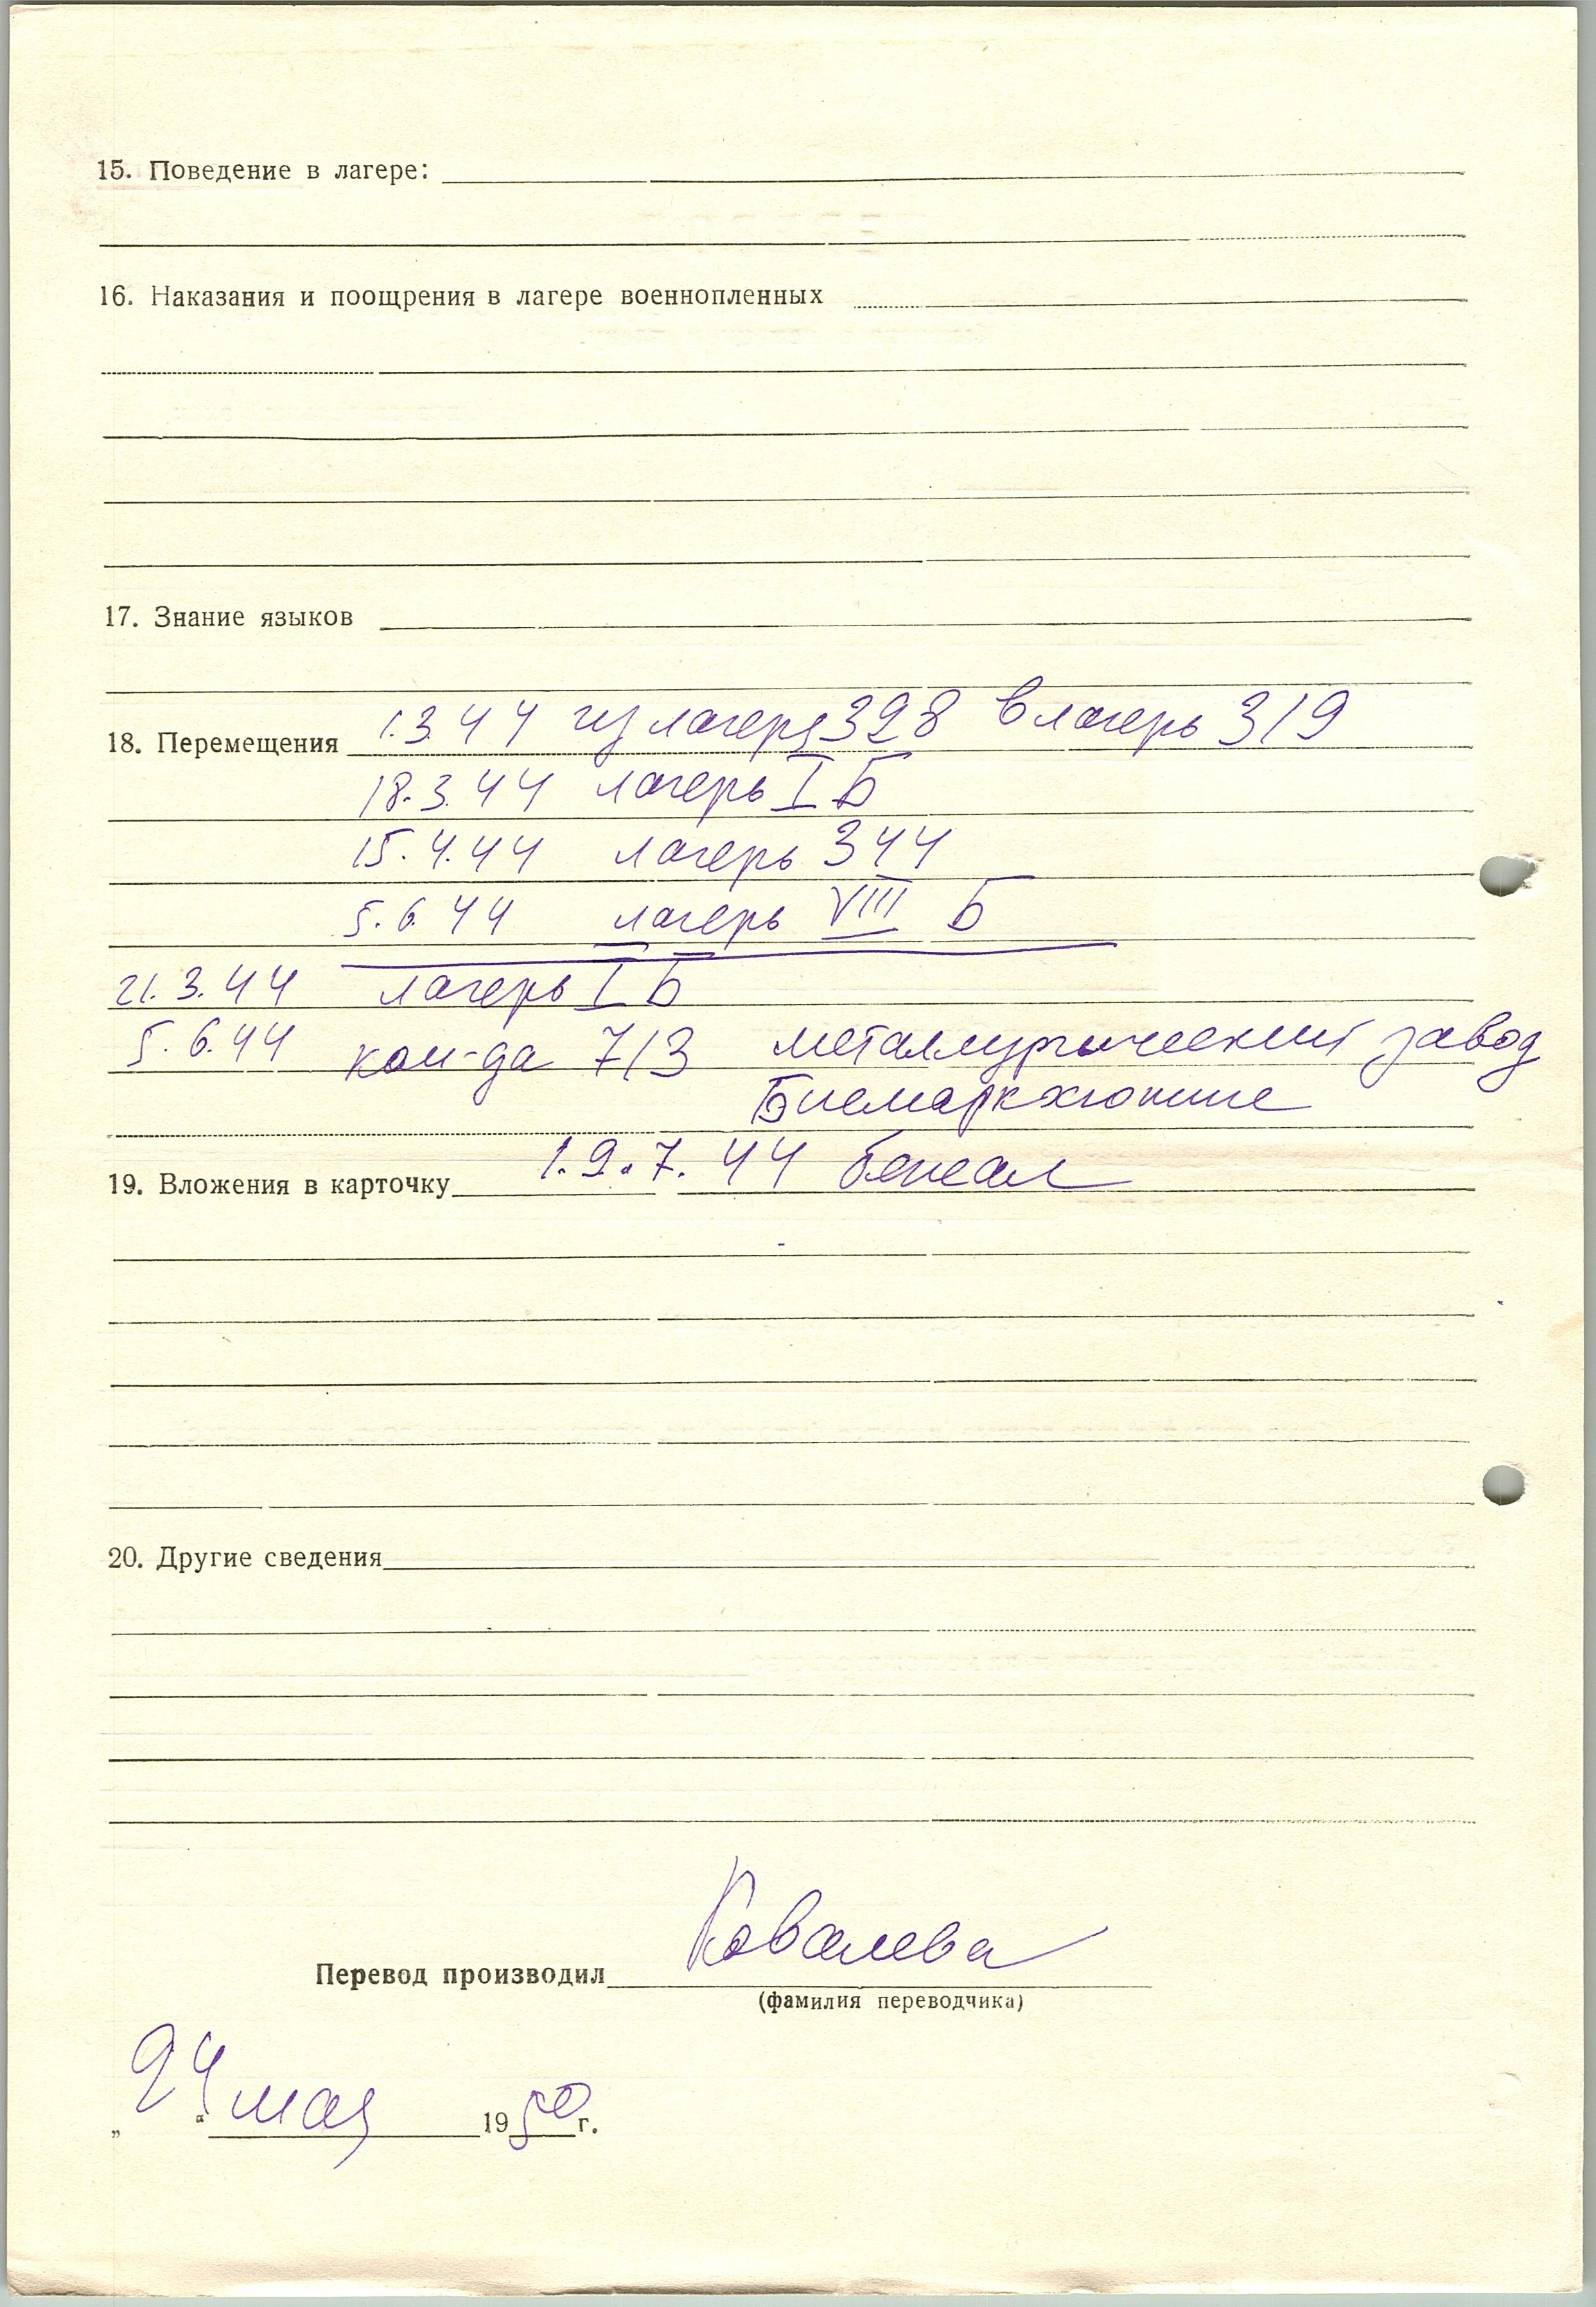 15. Поведение в лагере:
16. Наказания и поощрения в лагере военнопленных
17. Знание языков
18. Перемещения 1.3.44 из лагеря 328 в лагерь 319
18.3.44 лагерь I Б
15.4.44 лагерь 344
5.6.44 лагерь VIII Б
21.3.44 лагерь I Б
5.6.44 ком-да 713 металлургический завод
Бисмаркхютте
19. Вложения в карточку 19.7.44 бежал
20. Другие сведения
Перевод производил Ковалева
(фамилия переводчика)
„24“ мая 1950 г.